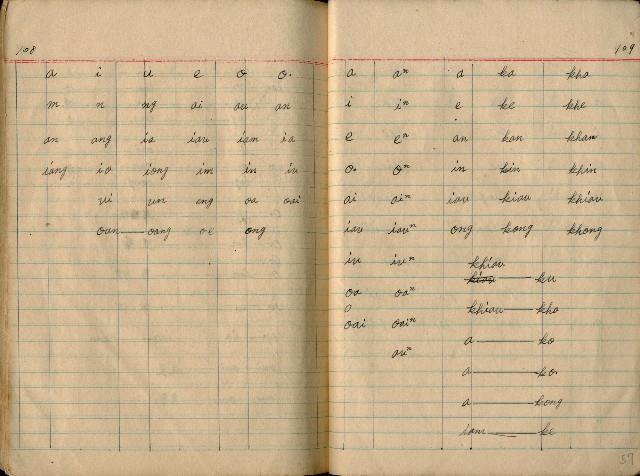 108
a i u e o o.
m n ng ai au an
an ang ia iau iam ia
iang io iong im in iu
ui un eng oa oai
oan — oang oe ong
109
a aⁿ a ka kha
i iⁿ e ke khe
e eⁿ an kan khan
o. oⁿ in kin khin
ai aiⁿ iau kiau khiau
iau iauⁿ ong kong khong
iu iuⁿ khiau
kiau — ku
oa oaⁿ
o khiau — kha
oai oaiⁿ
a — ko
auⁿ
a — ko.
a — kong
iam — ke
57